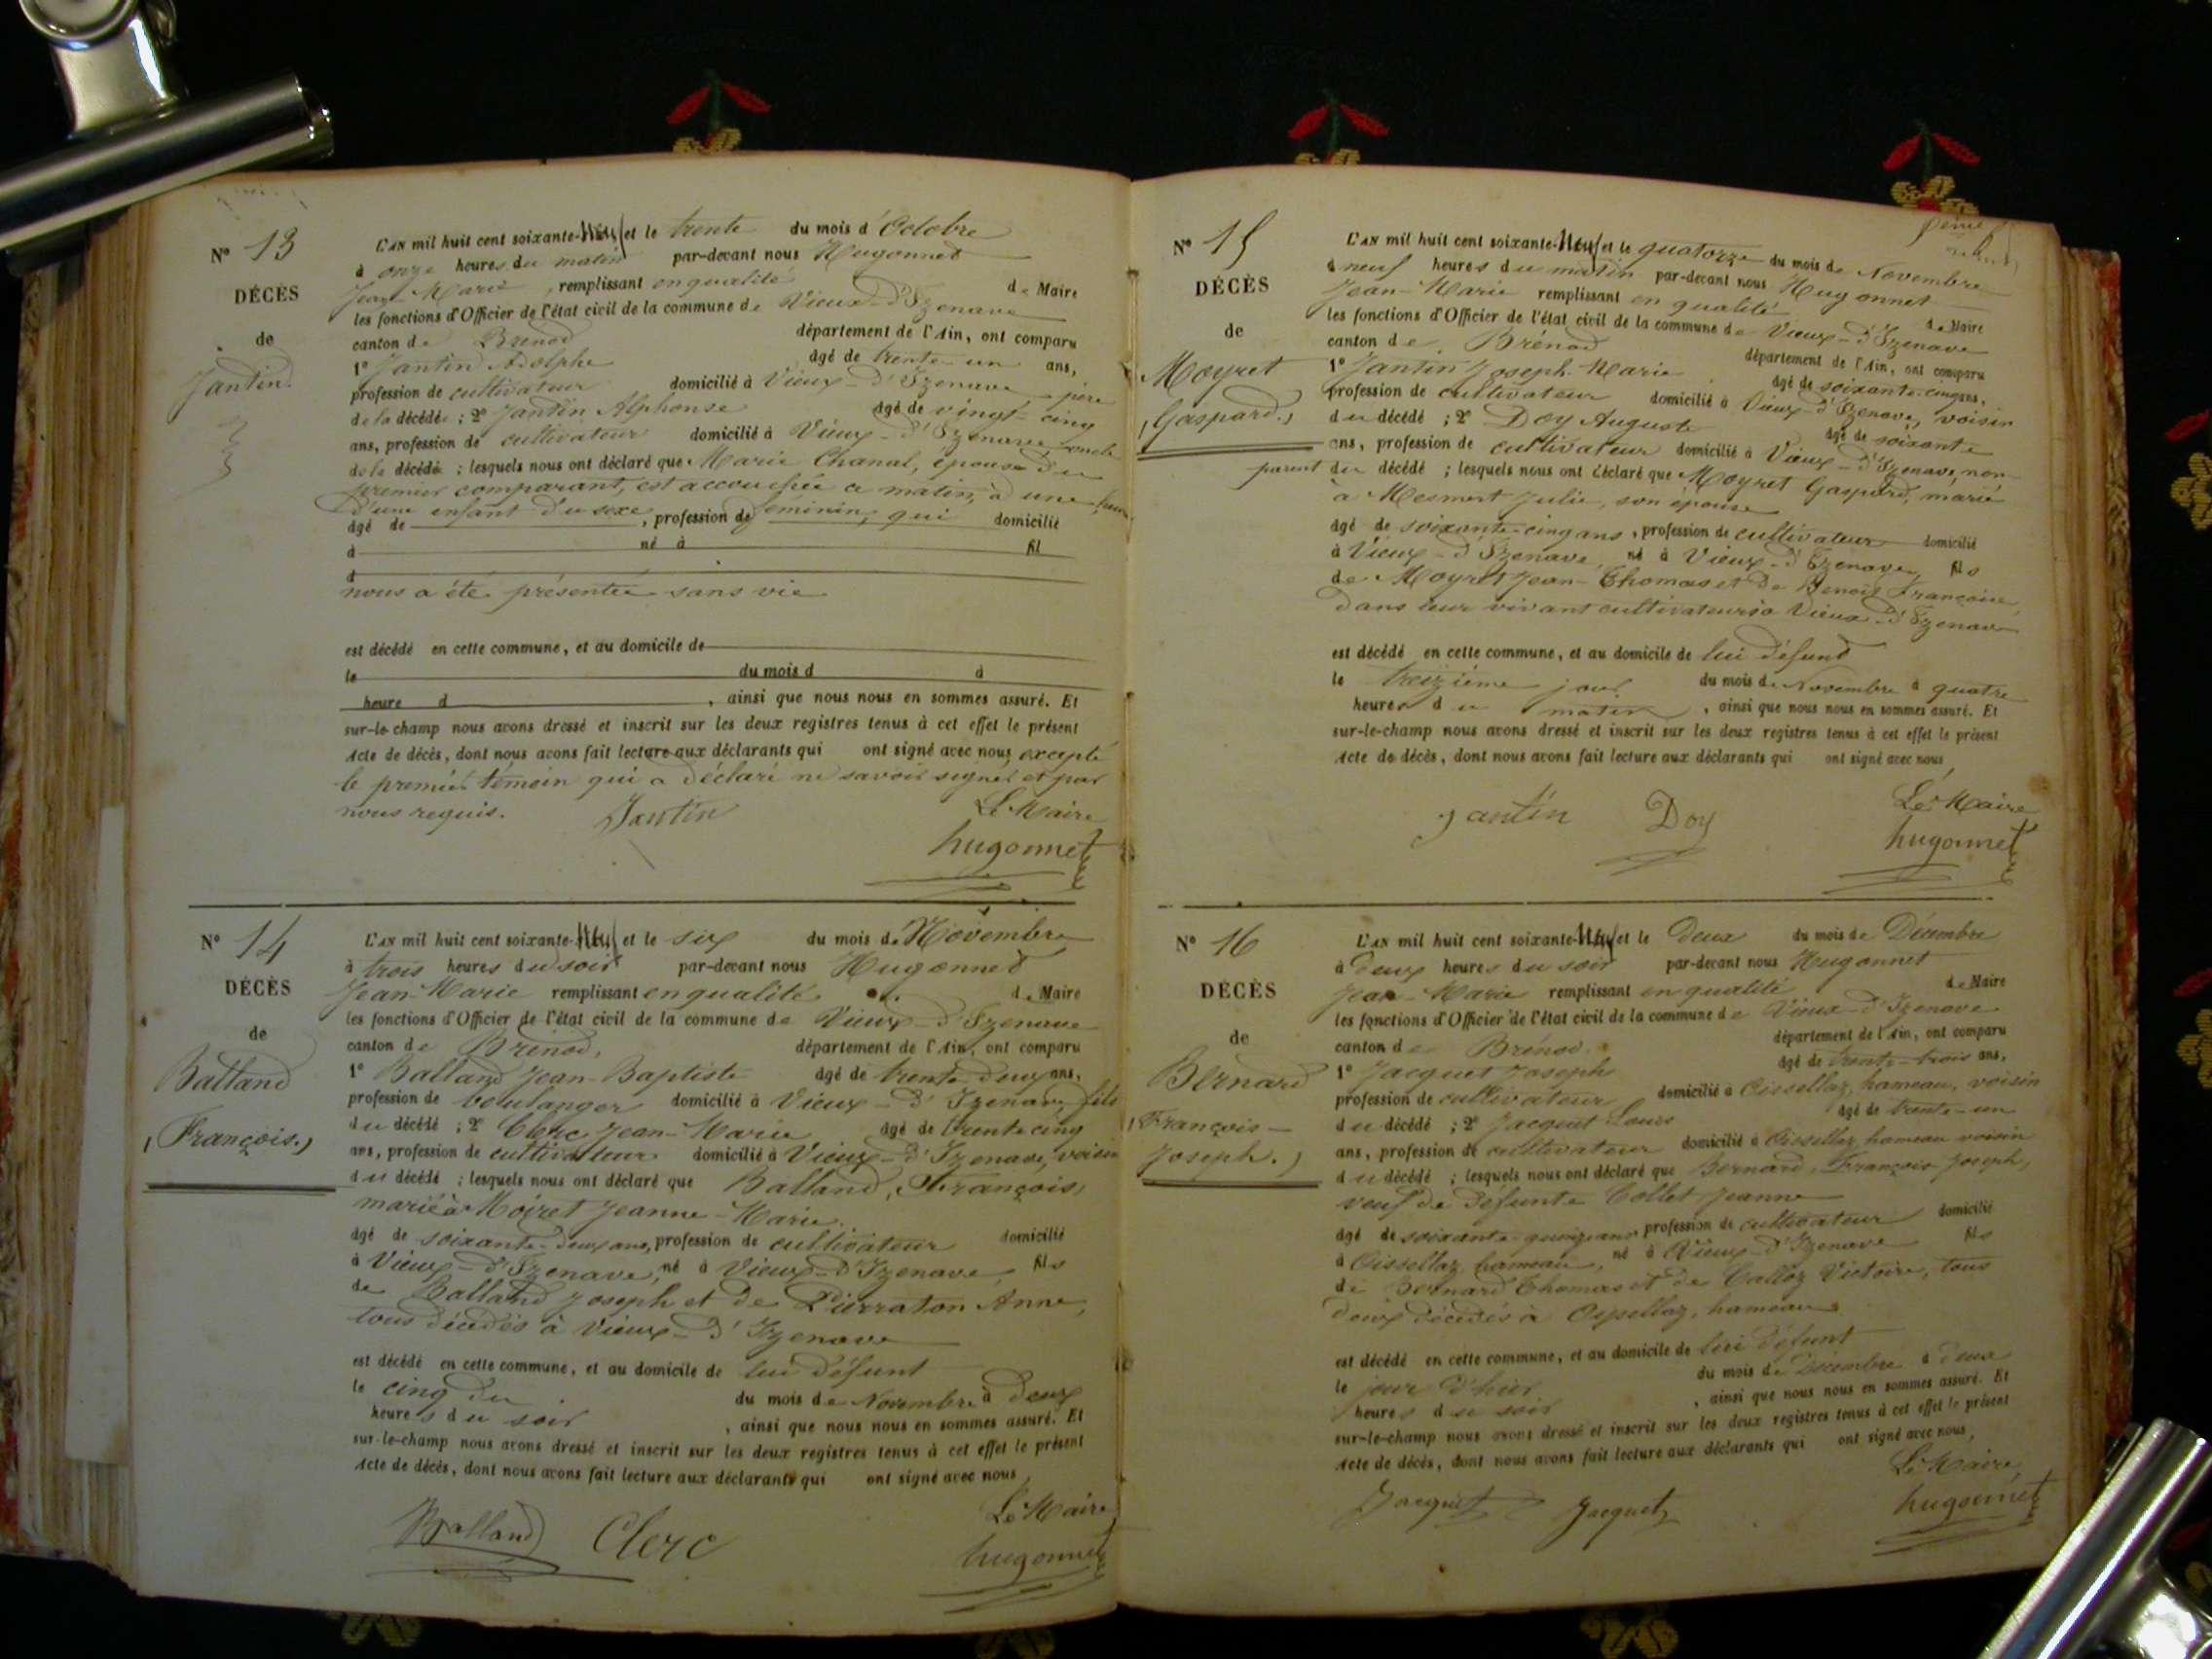 N° 13
DÉCÈS
de
Jantin.
L'AN mil huit cent soixante-Neuf et le trente du mois d'Octobre
à onze heures du matin par-devant nous Hugonnet
Jean Marie, remplissant en qualité de Maire
les fonctions d'Officier de l'état civil de la commune de Vieux-d'Izenave
canton de Brenod département de l'Ain, ont comparu
1° Jantin Adolphe âgé de trente-un ans,
profession de cultivateur domicilié à Vieux-d'Izenave père
de la décédée ; 2° Jantin Alphonse âgé de vingt-cinq
ans, profession de cultivateur domicilié à Vieux-d'Izenave, oncle
de la décédé ; lesquels nous ont déclaré que Marie Chanal, épouse du
premier comparant, est accouchée ce matin, à une heure
d'une enfant du sexe féminin, qui
âgé de , profession de domicilié
à né à fil
d
nous a été présentée sans vie
est décédé en cette commune, et au domicile de
le du mois d à
heure d , ainsi que nous nous en sommes assuré. Et
sur-le-champ nous avons dressé et inscrit sur les deux registres tenus à cet effet le présent
Acte de décès, dont nous avons fait lecture aux déclarants qui ont signé avec nous excepté
le premier témoin qui a déclaré ne savoir signer et par
nous requis. Jantin Le Maire
hugonnet
N° 14
DÉCÈS
de
Balland
(François.)
L'AN mil huit cent soixante-Neuf et le six du mois de Novembre
à trois heures du soir par-devant nous Hugonnet
Jean-Marie remplissant en qualité de Maire
les fonctions d'Officier de l'état civil de la commune de Vieux-d'Izenave
canton de Brénod, département de l'Ain, ont comparu
1° Balland Jean-Baptiste âgé de trente-deux ans,
profession de boulanger domicilié à Vieux-d'Izenave, fils
du décédé ; 2° Clerc Jean-Marie âgé de trente cinq
ans, profession de cultivateur domicilié à Vieux-d'Izenave, voisin
du décédé ; lesquels nous ont déclaré que Balland, François,
marié à Moiret Jeanne-Marie.
âgé de soixante-deux ans, profession de cultivateur domicilié
à Vieux-d'Izenave, né à Vieux-d'Izenave, fils
de Balland Joseph et de Pierraton Anne,
tous décédés à Vieux-d'Izenave
est décédé en cette commune, et au domicile de lui défunt
le cinq du du mois de Novembre à deux
heures du soir , ainsi que nous nous en sommes assuré. Et
sur-le-champ nous avons dressé et inscrit sur les deux registres tenus à cet effet le présent
Acte de décès, dont nous avons fait lecture aux déclarants qui ont signé avec nous,
Le Maire
Balland Clerc hugonnet
N° 15
DÉCÈS
de
Moyret
(Gaspard.)
L'AN mil huit cent soixante-Neuf et le quatorze du mois de Novembre
à neuf heures du matin par-devant nous Hugonnet
Jean-Marie remplissant en qualité de Maire
les fonctions d'Officier de l'état civil de la commune de Vieux-d'Izenave
canton de Brénod département de l'Ain, ont comparu
1° Jantin Joseph Marie âgé de soixante-cinq ans,
profession de cultivateur domicilié à Vieux-d'Izenave, voisin
du décédé ; 2° Doy Auguste âgé de soixante
ans, profession de cultivateur domicilié à Vieux-d'Izenave, non
parent du décédé ; lesquels nous ont déclaré que Moyret Gaspard, marié
à Mesmert Julie, son épouse
âgé de soixante-cinq ans, profession de cultivateur domicilié
à Vieux-d'Izenave, né à Vieux-d'Izenave, fils
de Moyret Jean-Thomas et de Benoît Françoise,
dans leur vivant cultivateurs à Vieux-d'Izenave
est décédé en cette commune, et au domicile de lui défunt
le treizième jour du mois de Novembre à quatre
heures du matin, ainsi que nous nous en sommes assuré. Et
sur-le-champ nous avons dressé et inscrit sur les deux registres tenus à cet effet le présent
Acte de décès, dont nous avons fait lecture aux déclarants qui ont signé avec nous,
Le Maire
Jantin Doy hugonnet
N° 16
DÉCÈS
de
Bernard
(François-
Joseph.)
L'AN mil huit cent soixante-Neuf et le deux du mois de Décembre
à deux heures du soir par-devant nous Hugonnet
Jean-Marie remplissant en qualité de Maire
les fonctions d'Officier de l'état civil de la commune de Vieux-d'Izenave
canton de Brénod. département de l'Ain, ont comparu
1° Jacquet Joseph âgé de trente-trois ans,
profession de cultivateur domicilié à Oissellaz, hameau, voisin
du décédé ; 2° Jacquet Louis âgé de trente-un
ans, profession de cultivateur domicilié à Oissellaz hameau voisin
du décédé ; lesquels nous ont déclaré que Bernard, François-Joseph,
veuf de défunte Collet Jeanne
âgé de soixante-quinze ans, profession de cultivateur domicilié
à Oissellaz hameau, né à Vieux-d'Izenave fils
de Bernard Thomas et de Calloz Victoire, tous
deux décédés à hameau
est décédé en cette commune, et au domicile de lui défunt
le jour d'hier du mois de Décembre à deux
heures du soir , ainsi que nous nous en sommes assuré. Et
sur-le-champ nous avons dressé et inscrit sur les deux registres tenus à cet effet le présent
Acte de décès, dont nous avons fait lecture aux déclarants qui ont signé avec nous,
Le Maire,
Jacquet Jacquet hugonnet